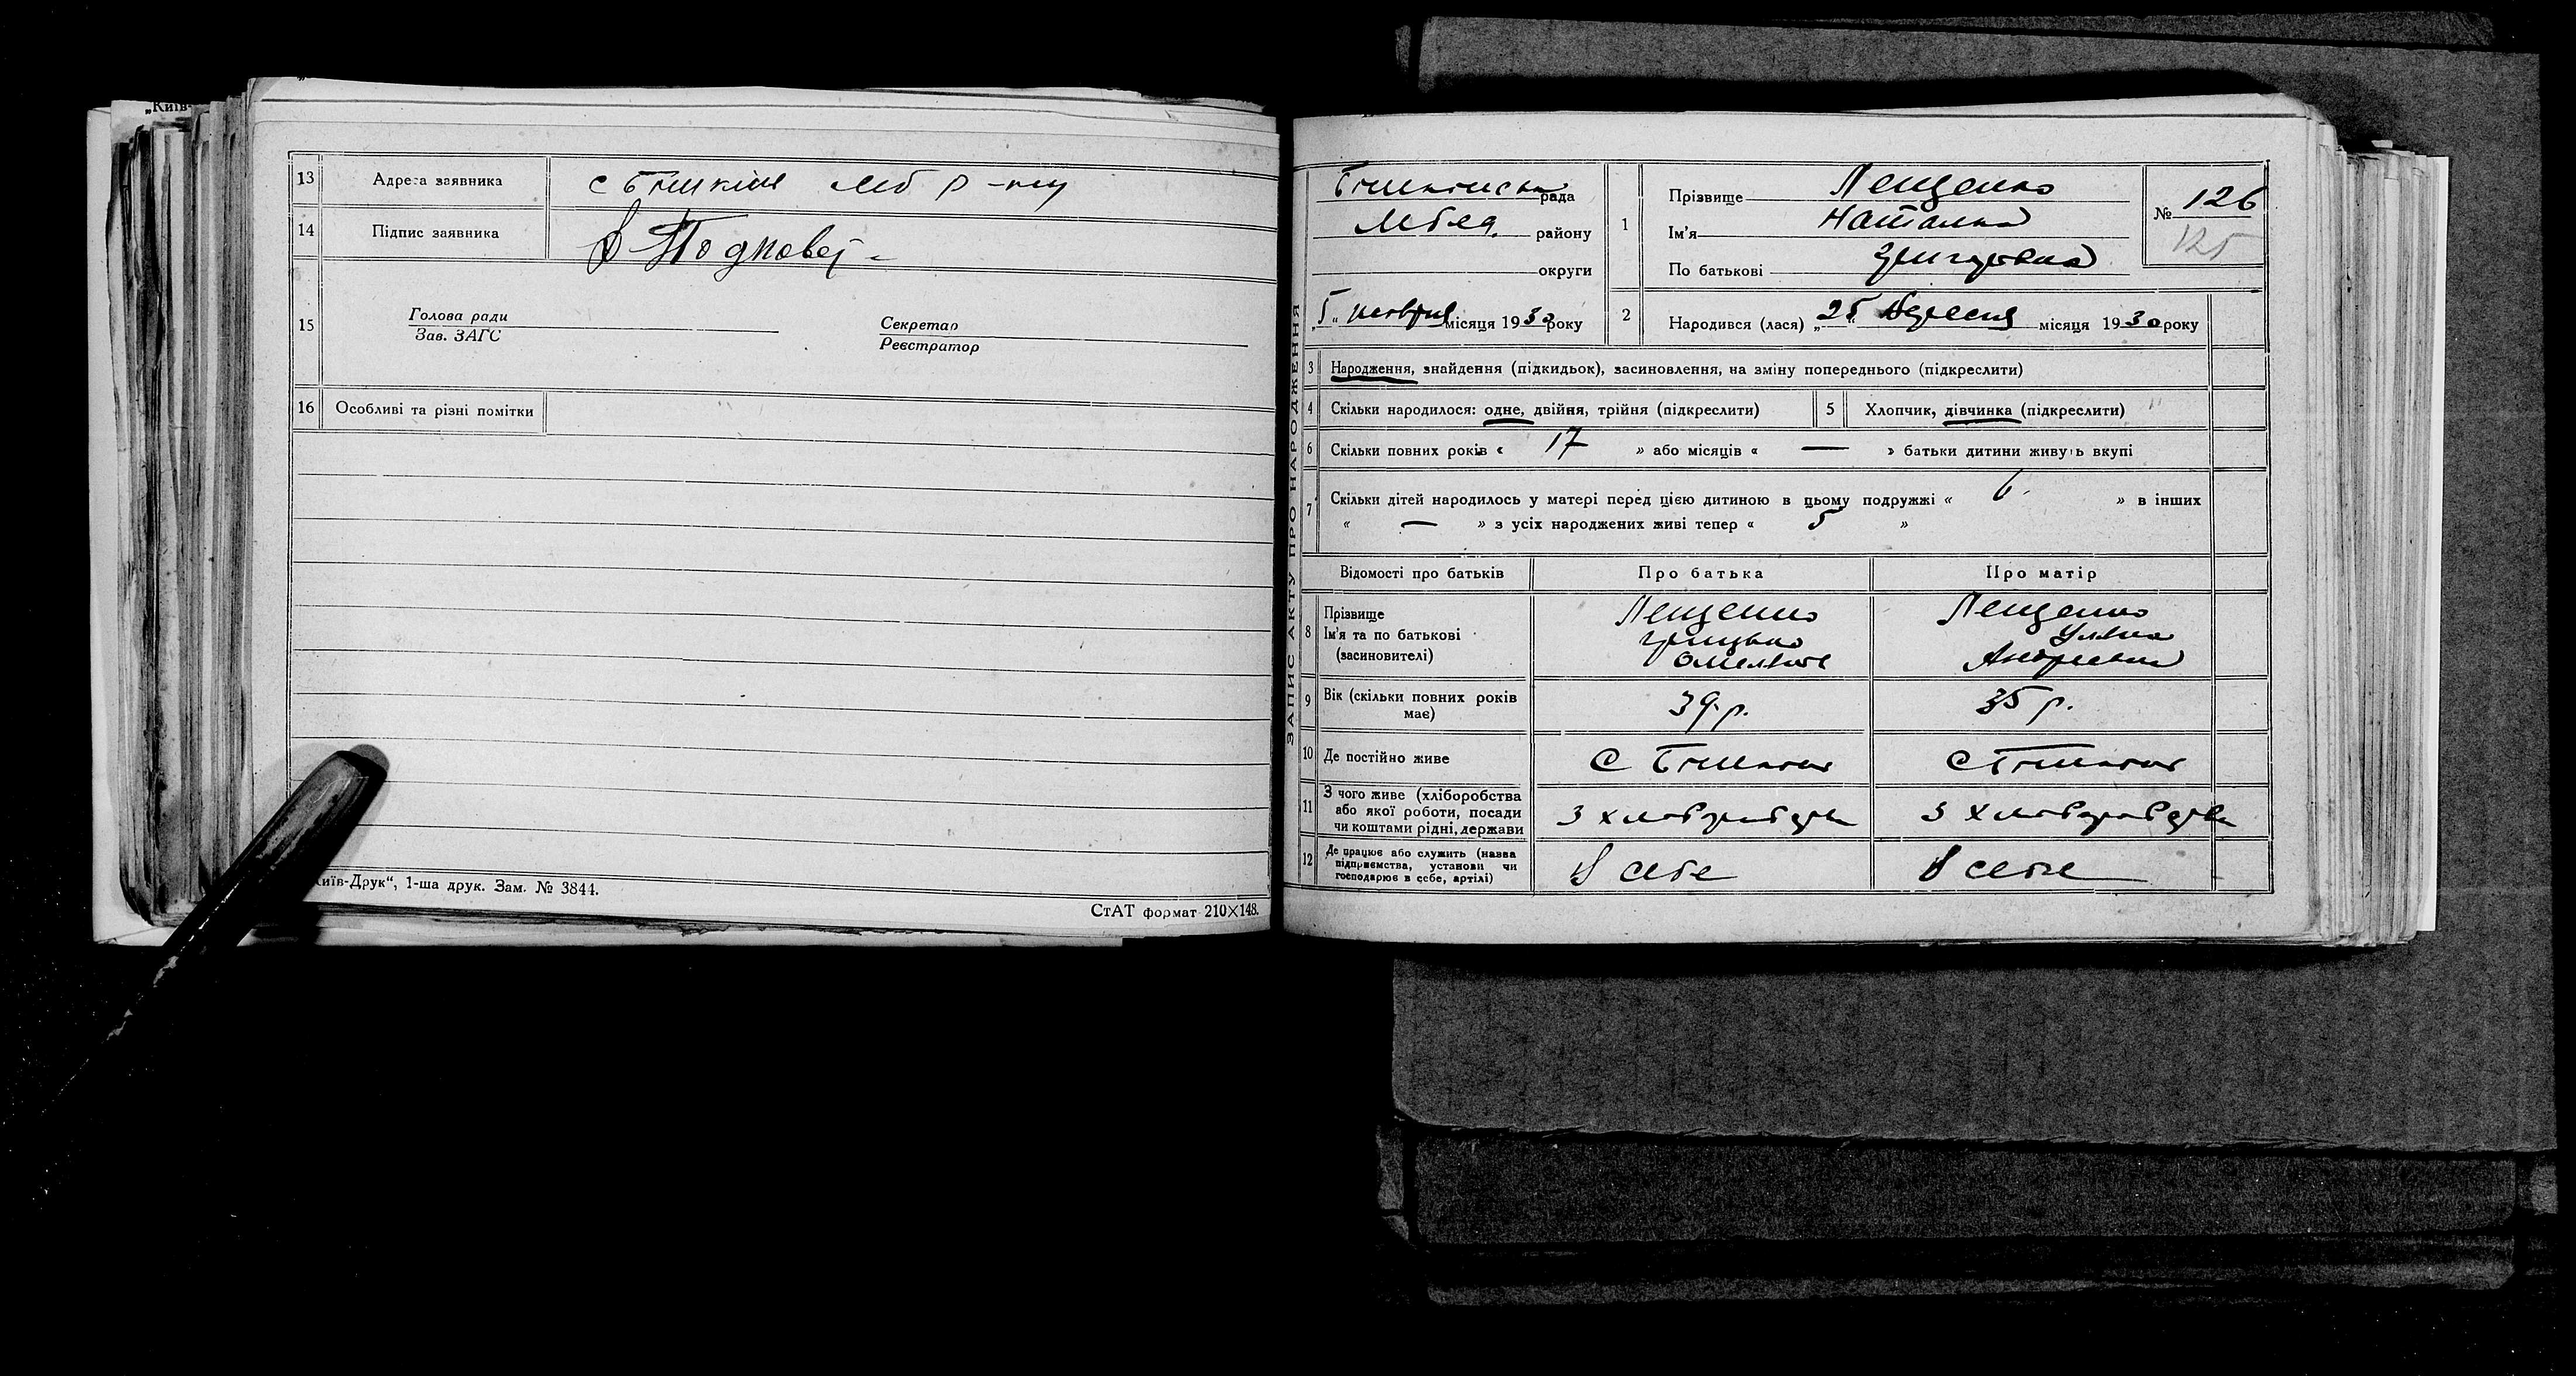 „Київ-
13 Адреса заявника с Бишкінь Леб р-ну
14 Підпис заявника
15 Голова ради Секретар
Зав. ЗАГС Реєстратор
16 Особливі та різні помітки
Київ-Друк“, 1-ша друк. Зам. № 3844.
СтАТ формат 210×148.
ЗАПИС АКТУ ПРО НАРОДЖЕННЯ
рада
району
округи
„5“ місяця 1930 року
1 Прізвище Лещенко
Ім'я Наталка
По батькові Григорівна
№ 126
125
2 Народився (лася) „25“ Вересня місяця 1930 року
3 Народження, знайдення (підкидьок), засиновлення, на зміну попереднього (підкреслити)
4 Скільки народилося: одне, двійня, трійня (підкреслити) 5 Хлопчик, дівчинка (підкреслити)
6 Скільки повних років « 17 » або місяців « — » батьки дитини живуть вкупі
7 Скільки дітей народилось у матері перед цією дитиною в цьому подружжі « 6 » в інших
« — » з усіх народжених живі тепер « 5 »
Відомості про батьків Про батька Про матір
8 Прізвище Лещенко Лещенко
Ім'я та по батькові Грицько Уляна
(засиновителі) Омелянов Андреевна
9 Вік (скільки повних років має) 39 р. 35 р.
10 Де постійно живе с Бишкінь с Бишкінь
11 З чого живе (хліборобства
або якої роботи, посади
чи коштами рідні, держави З хліборобства З хліборобства
12 Де працює або служить (назва
підприємства, установи чи
господарює в себе, артілі) В себе В себе